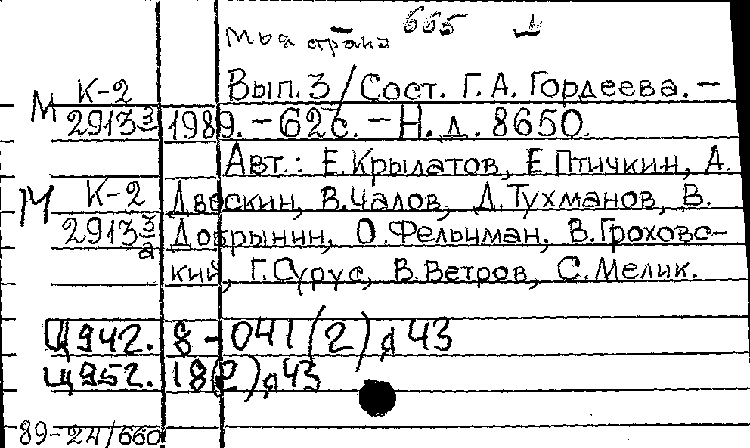 Моя страна 665 Д
Вып. 3 / Сост. Г. А. Гордеева. –
М К-2
2913 3 1989. – 62 с. – Н. д. 8650.
Авт.: Е. Крылатов, Е. Птичкин, А.
М К-2 Двоскин, В. Чалов, Д. Тухманов, В.
2913 3 а Добрынин, О. Фельцман, В. Грохово-
кий, Г. Сурус, В. Ветров, С. Мелик.
Щ942. 8-041(2)я43
Щ952. 18(2)я43
89-24/660